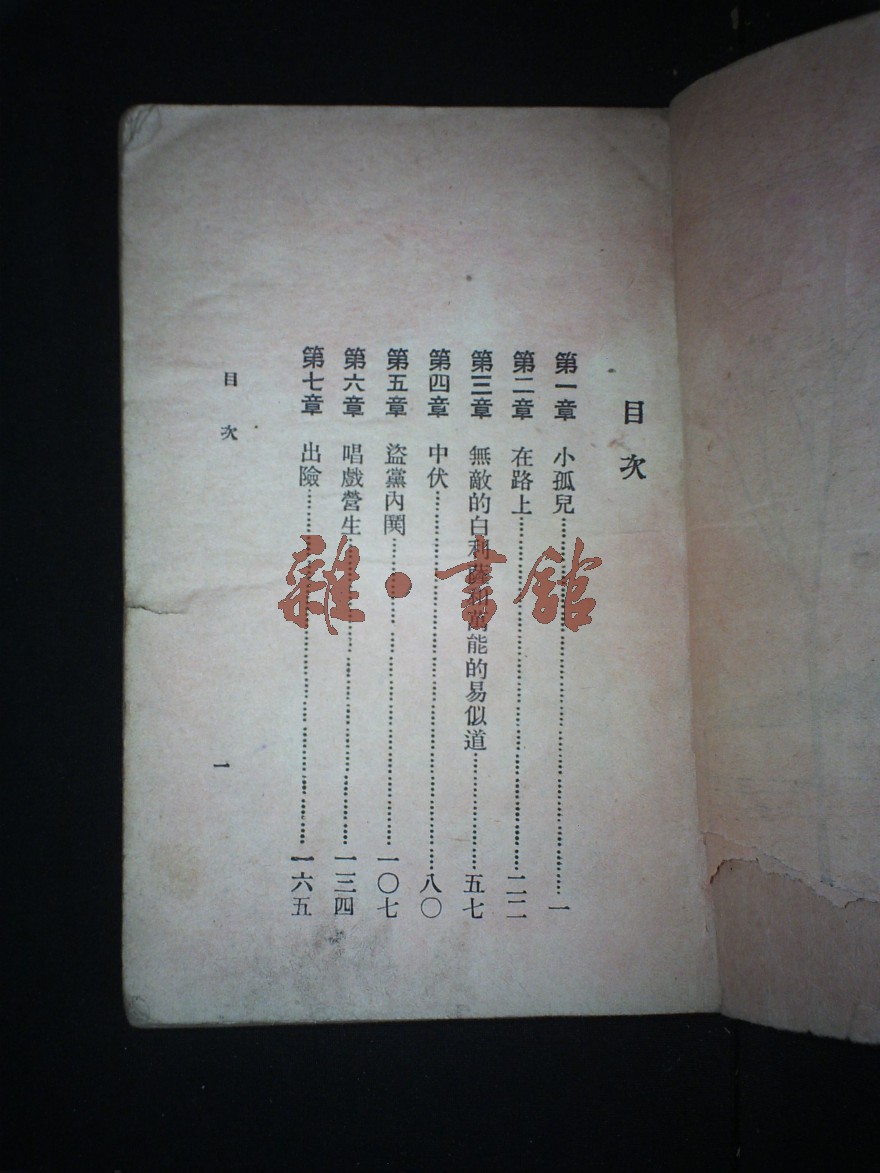 目次
第一章 小孤兒……一
第二章 在路上……二二
第三章 無敵的白利薩和萬能的易似道……五七
第四章 中伏……八〇
第五章 盜黨內鬨……一〇七
第六章 唱戲營生……一三四
第七章 出險……一六五
目次
一
雜·書館